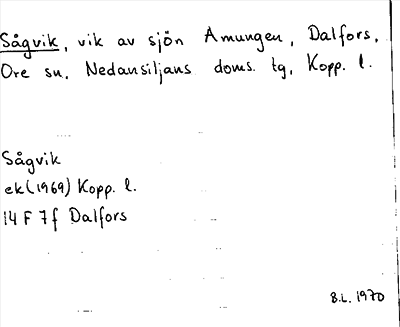 Sågvik, vik av sjön Amungen, Dalfors,
Ore sn, Nedansiljans doms. tg, Kopp. l.
Sågvik
ek (1969) Kopp. l.
14 F 7f Dalfors
B.L. 1970